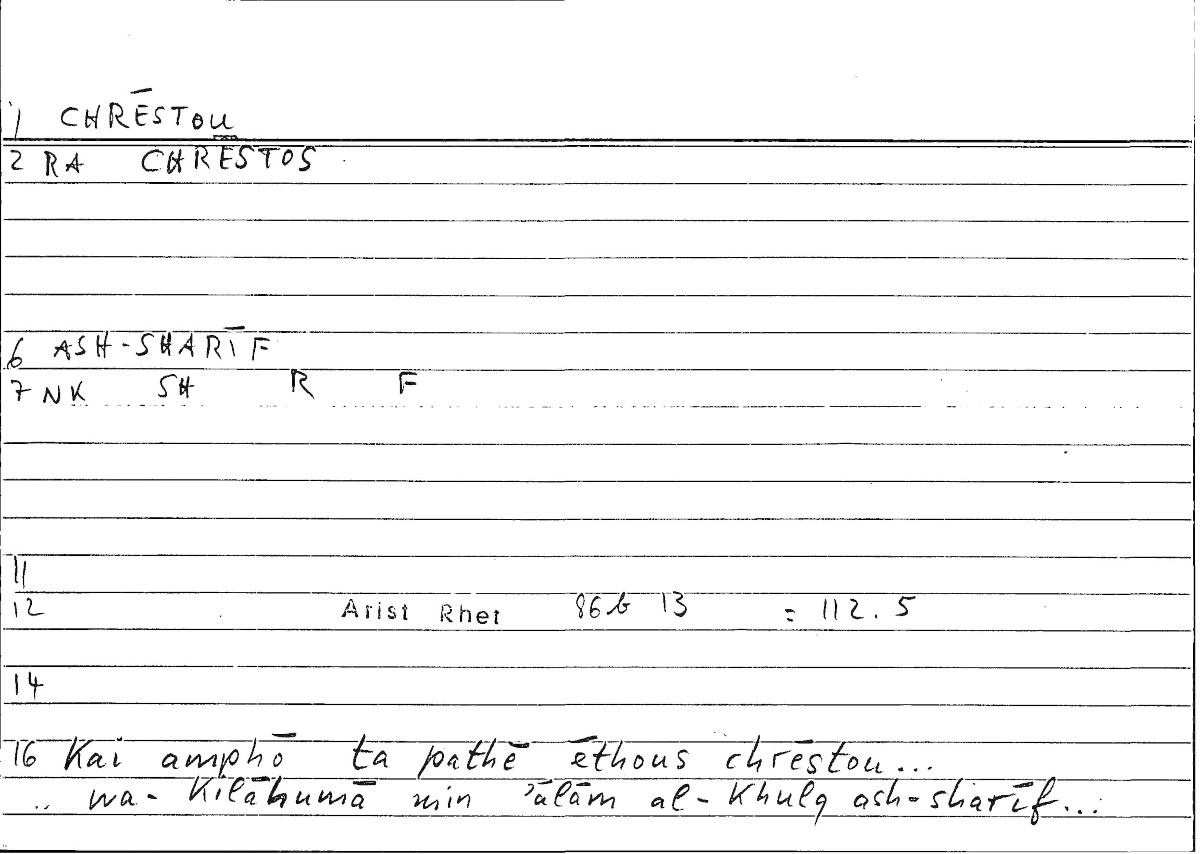 1 CHRĒSTOU
2 RA CHRESTOS
6 ASH-SHARĪF
7 NK SH R F
11
12 Arist Rhet 86b 13 = 112.5
14
16 Kai amphō ta pathē ēthous chrēstou...
.. wa-Kilāhumā min 'ālām al-Khulq ash-sharīf...